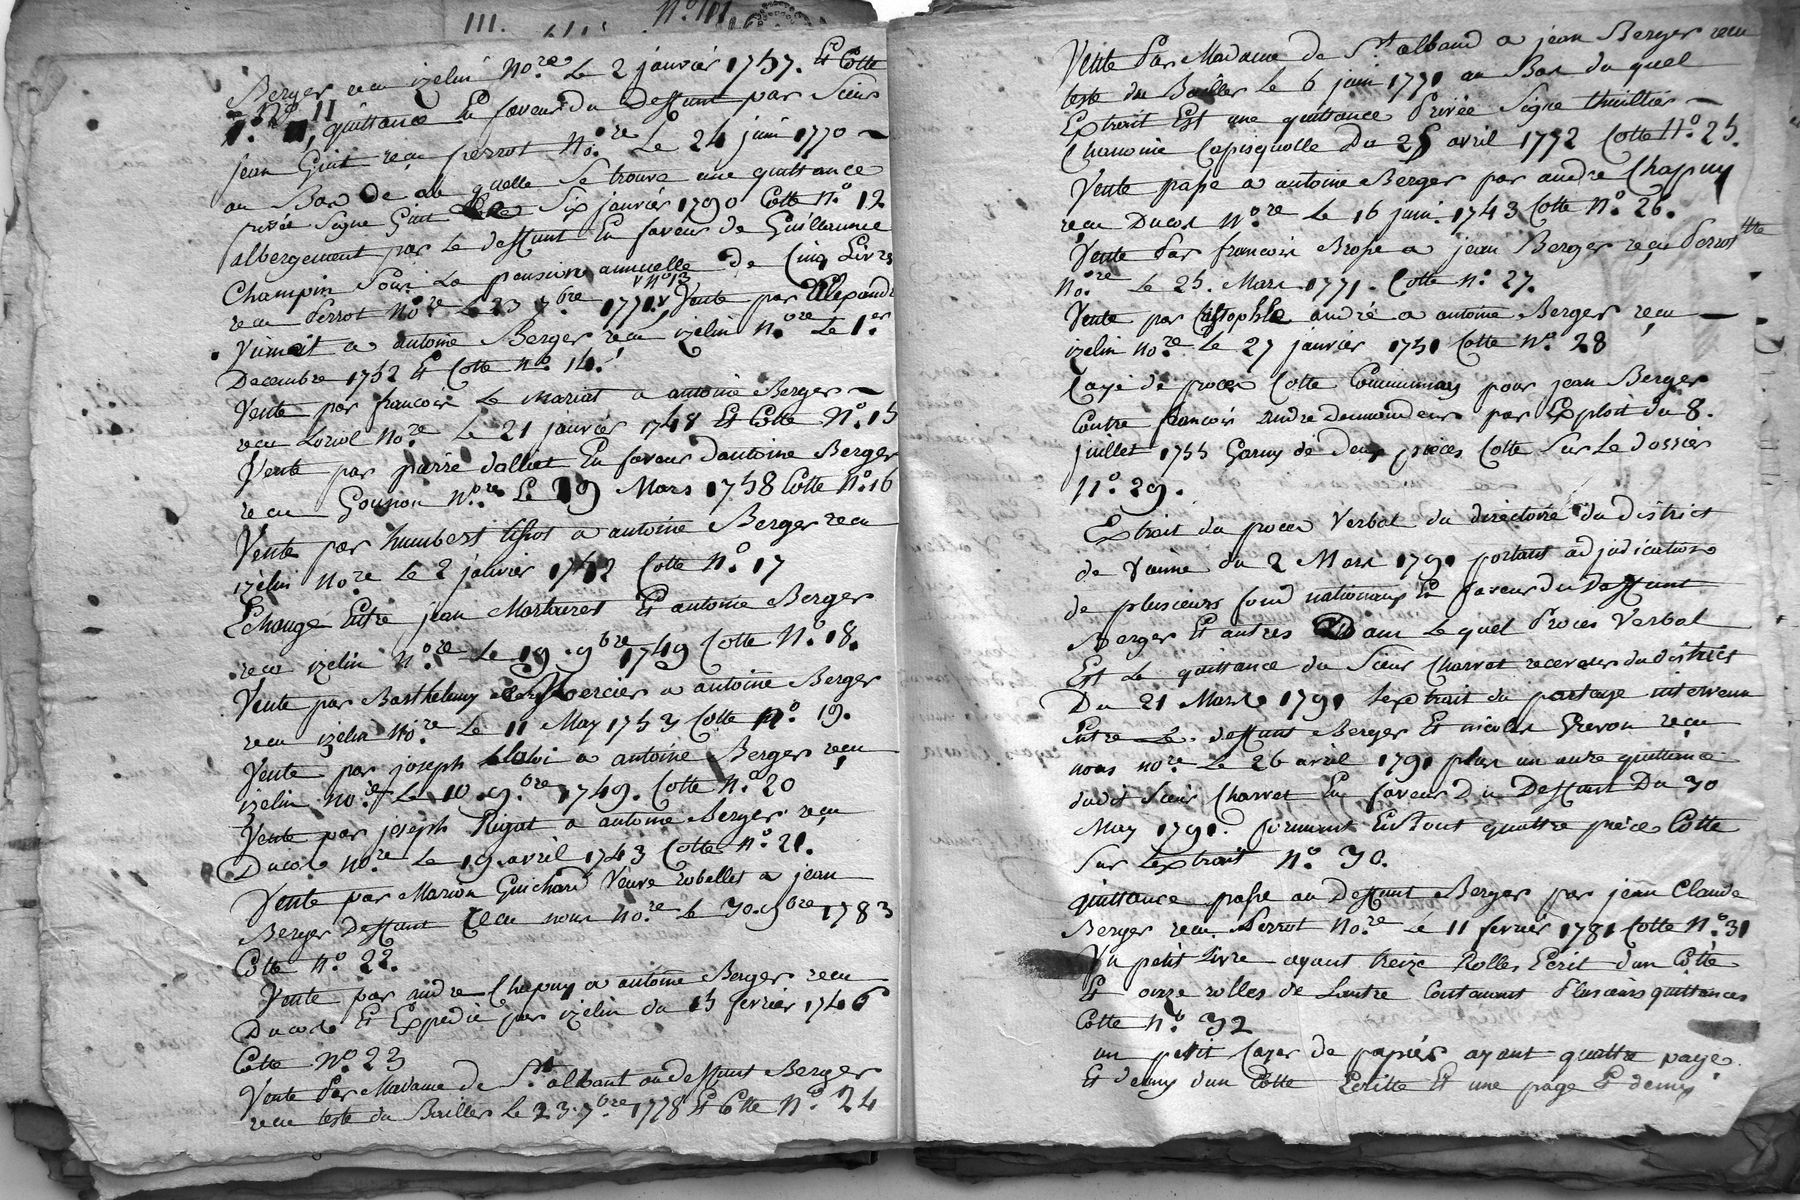 III.
N° 101
Berger recu izelin No.re Le 2 janvier 1757. Et Cotte
N° 11
quittance En faveur du Deffunt par Sieur
jean Guit recu perrot No.re Le 24 juin 1770 ~
au Bas de la quelle Se trouve une quittance
privée Signe Guit Six janvier 1790 Cotte N° 12
albergement par Le deffunt En faveur de Guillaume
Champin Sous La pension annuelle de Cinq Livres
N° 13
recu Perrot No.re Le 23 7bre 1771. Vente par Alexandre
a antoine Berger recu izelin N.ore Le 1.er
Decembre 1752 Et Cotte N° 14.
Vente par francois Le Mariat a antoine Berger ~
recu Loriol No.re Le 21 janvier 1748 Et Cotte N° 15
Vente par pierre dalliat En faveur dantoine Berger
recu Goujon N.ore Le 19 Mars 1758 Cotte N° 16
Vente par humbert tissot a antoine Berger recu
izelin No.re Le 2 janvier 1752 Cotte N° 17
Echange Entre jean Marturet Et antoine Berger
recu izelin N.ore Le 19. 9bre 1749 Cotte N° 18.
Vente par Barthelemy Mercier a antoine Berger
recu izelin No.re Le 11 May 1753 Cotte N° 19.
Vente par joseph a antoine Berger recu
izelin No.re Le 10. 9.bre 1749. Cotte N° 20
Vente par joseph Rigat a antoine Berger recu
Ducos No.re Le 19 avril 1743 Cotte N° 21.
Vente par Marion Guichard Veuve robellet a jean
Berger Deffunt recu nous No.re Le 30. 9bre 1783
Cotte N° 22.
Vente par andre Chapuy a antoine Berger recu
Ducos Et Expedié par izelin du 15 fevrier 1746
Cotte N° 23
Vente Par Madame de St albant audeffunt Berger
recu teste du Bailler Le 23. 7bre 1778 Et Cotte N° 24
Vente Par Madame de St alband a jean Berger recu
teste du Bailler Le 6 juin 1771 au Bas du quel
Extrait Est une quittance Privée Signe thuillier ~
Chanoine Capisquolle Du 25 avril 1772 Cotte N° 25.
Vente passe a antoine Berger par andre Chappuy
recu Ducos N.re Le 16 juin 1743 Cotte N° 26.
Vente Par francois Brosse a jean Berger recu Perrot
No.re Le 25. Mars 1771. Cotte N° 27.
Vente par Cristophle andré a antoine Berger recu —
izelin No.re Le 27 janvier 1751 Cotte N° 28
Cayé de proces Cotte Communias pour jean Berger
Contre francois andre demandeur par Exploit du 8.
juillet 1755 Garny de deux pieces Cotte Sur Le dossier
N° 29.
Extrait du proces Verbal du directoire du district
de Vienne du 2 Mars 1791 portant adjudication
de plusieurs fond nationaux En faveur du Deffunt
Berger Et autres Dans Lequel Proces Verbal
Est La quittance du Sieur Charvet receveur du district
Du 21 Mars 1791 Lextrait du partage intervenu
Entre Le deffunt Berger Et nicolas recu
nous no.re Le 26 avril 1791 plus un autre quittance
dudit Sieur Charvet En faveur Du Deffunt Du 30
May 1791. formant En tout quattre piéce Cotte
Sur Lextrait N° 30.
quittance passe au Deffunt Berger par jean Claude
Berger recu Perrot No.re Le 11 fevrier 1781 Cotte N° 31
Un petit Livre ayant treize Rolles Ecrit dun Cotté
Et onze rolles de Lautre Contenant Plusieurs quittances
Cotte N° 32
un petit Cayer de papier ayant quattre page
Et demy dun Cotte Ecritte Et une page Et demy